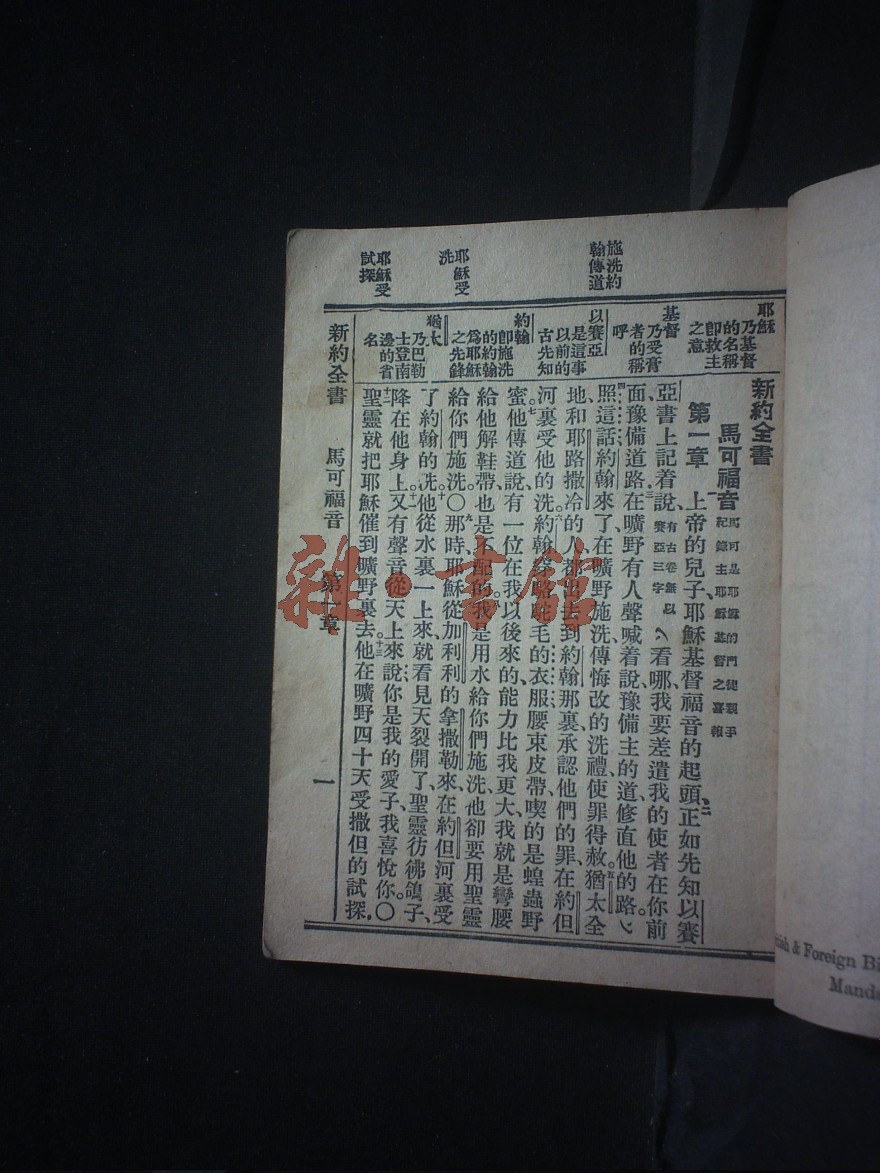 施洗約
翰傳道
耶穌受
洗
耶穌受
試探
耶穌
乃基督
的名稱
卽救主
之意
基督
乃受膏
者的稱
呼
以賽亞
是這事
以前的
古先知
約翰
卽施洗
的約翰
為耶穌
之先鋒
猶太
乃巴勒
士登南
邊的省
名
新約全書
馬可福音
馬可是耶穌的門徒親手
紀錄主耶穌基督之喜報
第一章 一上帝的兒子、耶穌基督福音的起頭、二正如先知以賽
亞書上記着說、有古卷無以賽亞三字〱看哪、我要差遣我的使者在你前
面、豫備道路、三在曠野有人聲喊着說、豫備主的道、修直他的路。〱
四照這話約翰來了、在曠野施洗、傳悔改的洗禮、使罪得赦。五猶太全
地、和耶路撒冷的人、都出去到約翰那裏、承認他們的罪、在約但
河裏受他的洗。六約翰穿駱駝毛的衣服、腰束皮帶、喫的是蝗蟲野
蜜。七他傳道說、有一位在我以後來的、能力比我更大、我就是彎腰
給他解鞋帶、也是不配的。八我是用水給你們施洗、他卻要用聖靈
給你們施洗。〇九那時、耶穌從加利利的拿撒勒來、在約但河裏受
了約翰的洗。十他從水裏一上來、就看見天裂開了、聖靈彷彿鴿子、
降在他身上。十一又有聲音從天上來說、你是我的愛子、我喜悅你。〇
十二聖靈就把耶穌催到曠野裏去。十三他在曠野四十天受撒但的試探、
新約全書 馬可福音 第一章 一
雜·書館
& Foreign Bi
Manda